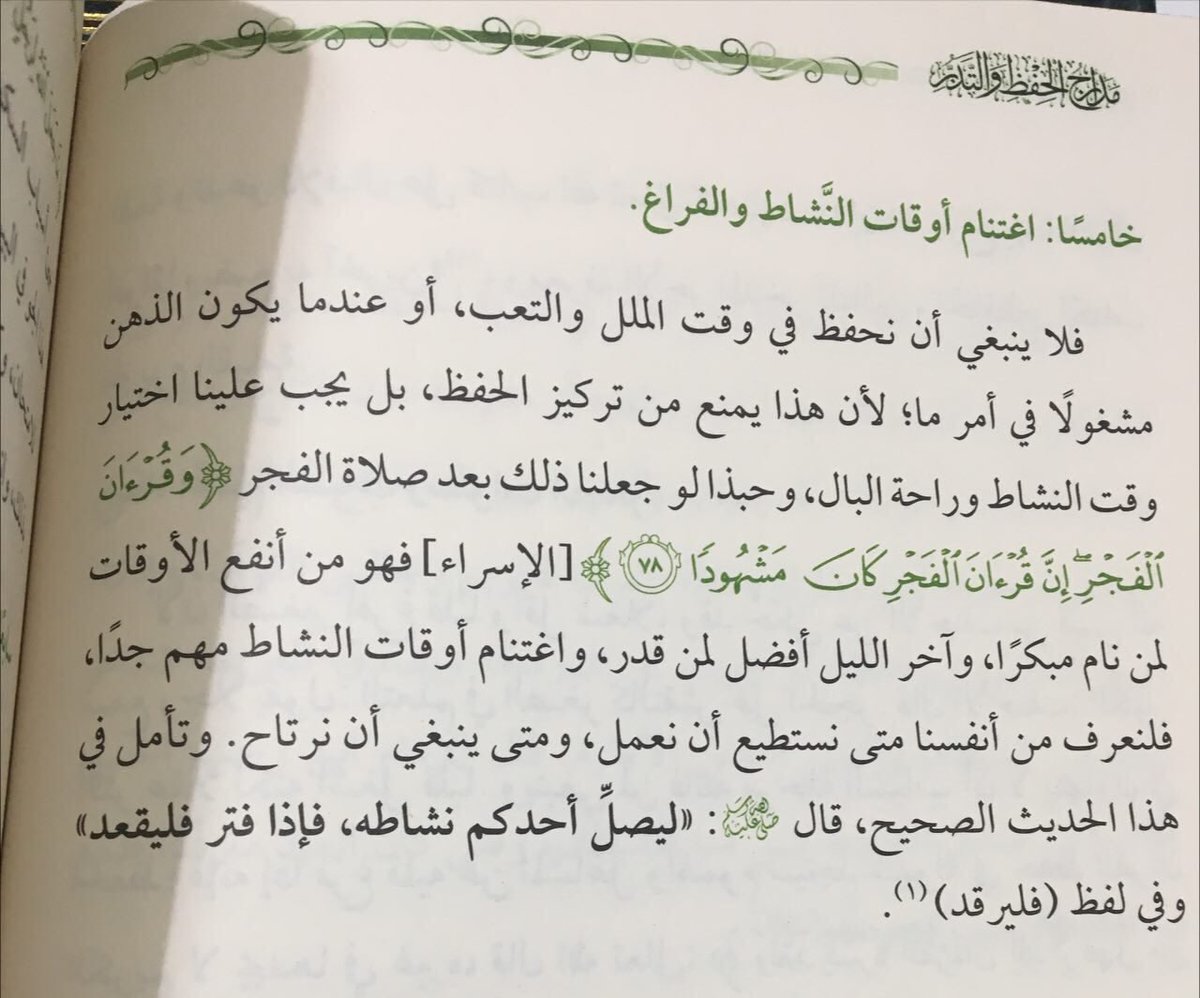 مدارج الحفظ والتدبر
خامسًا: اغتنام أوقات النَّشاط والفراغ.
فلا ينبغي أن نحفظ في وقت الملل والتعب، أو عندما يكون الذهن
مشغولًا في أمر ما؛ لأن هذا يمنع من تركيز الحفظ، بل يجب علينا اختيار
وقت النشاط وراحة البال، وحبذا لو جعلنا ذلك بعد صلاة الفجر ﴿وَقُرْءَانَ
ٱلْفَجْرِۖ إِنَّ قُرْءَانَ ٱلْفَجْرِ كَانَ مَشْهُودًا ٧٨﴾ [الإسراء] فهو من أنفع الأوقات
لمن نام مبكرًا، وآخر الليل أفضل لمن قدر، واغتنام أوقات النشاط مهم جدًا،
فلنعرف من أنفسنا متى نستطيع أن نعمل، ومتى ينبغي أن نرتاح. وتأمل في
هذا الحديث الصحيح، قال ﷺ: «ليصلِّ أحدكم نشاطه، فإذا فتر فليقعد»
وفي لفظ (فليرقد)(١).